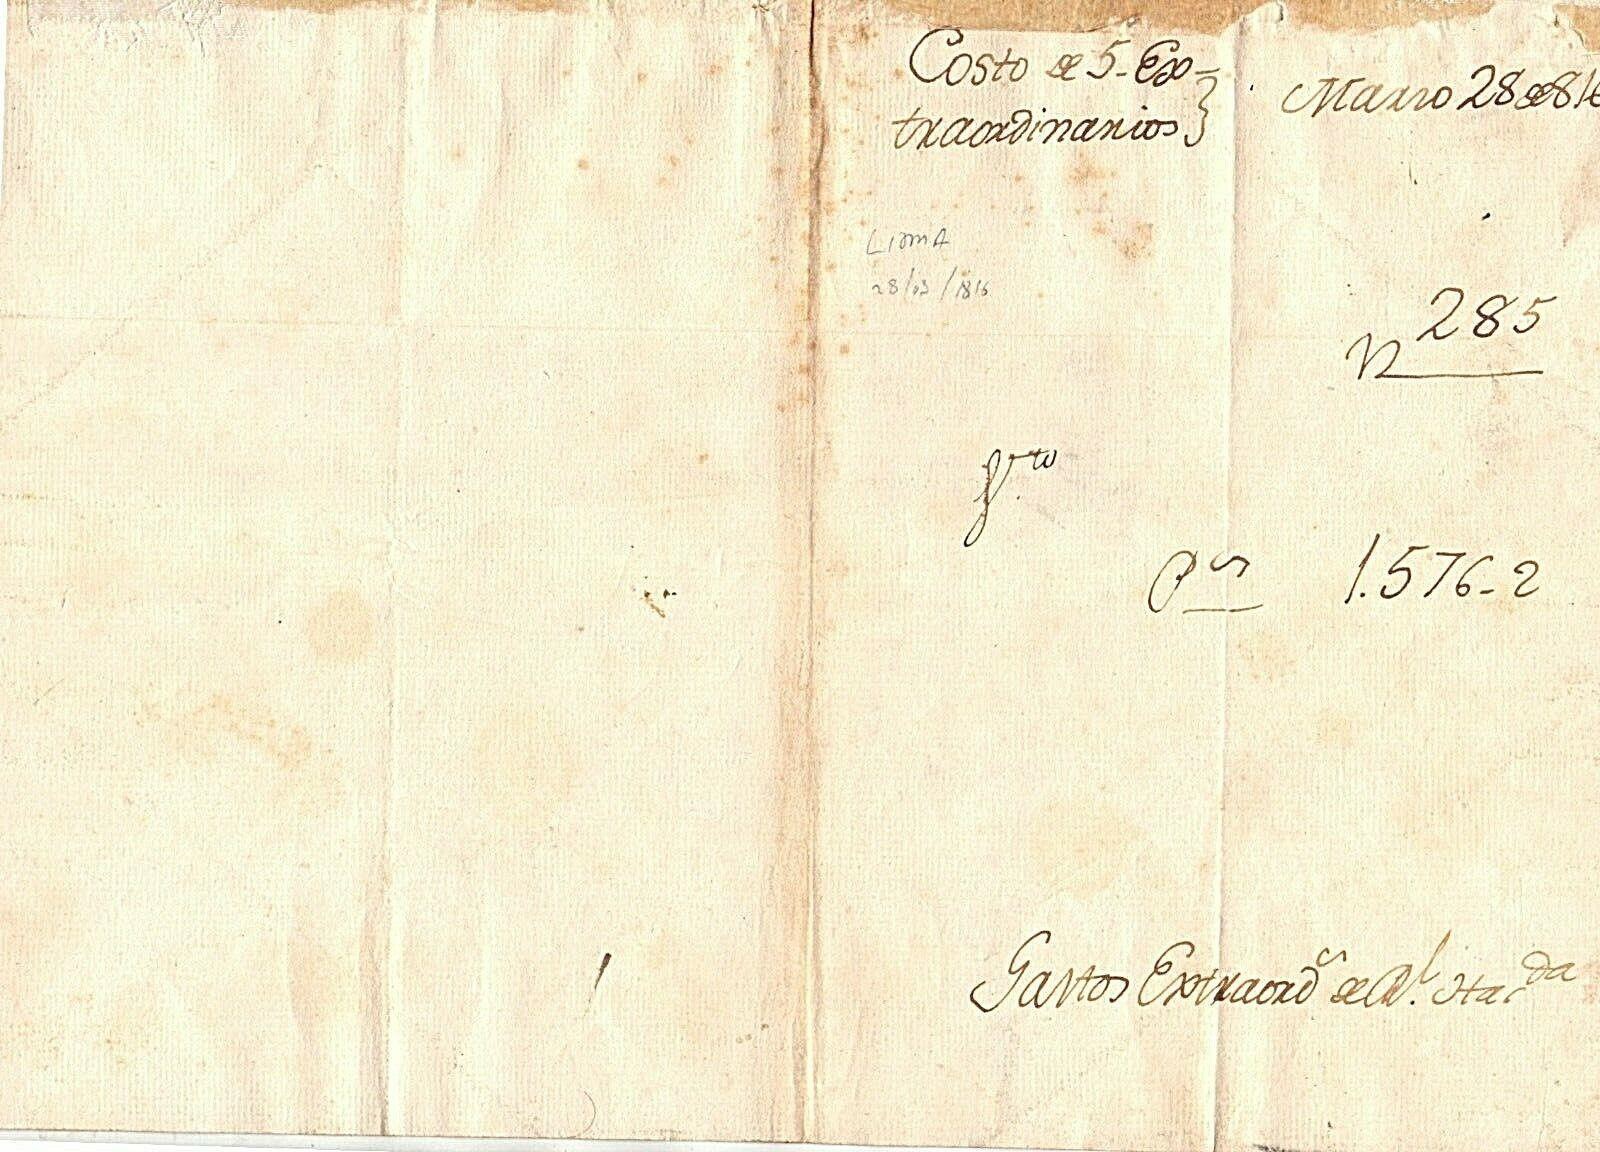 Costo de 5- Ex-
traordinarios
Marzo 28 de 816
LIMA
28/03/1816
N 285
Ps 1.576-2
Gastos Extraords de Rl. Hacda